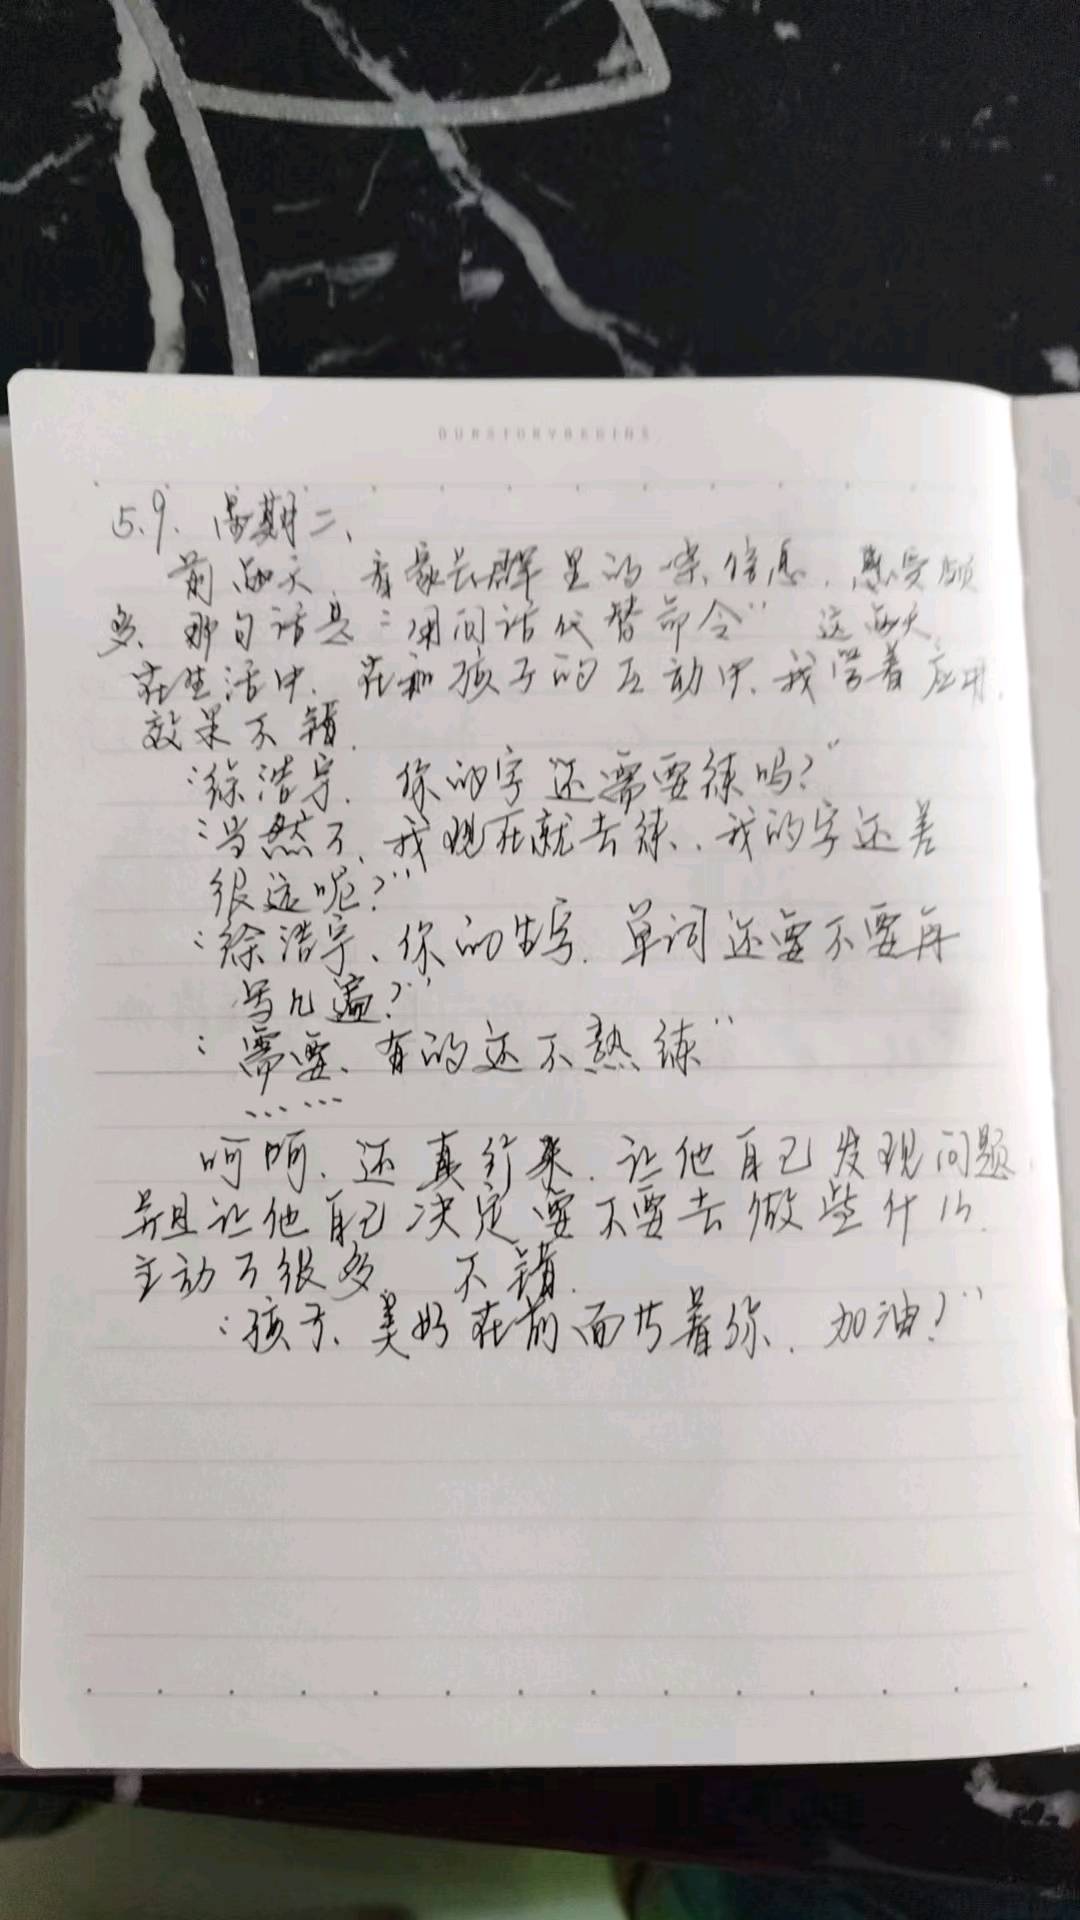 OURSTORYBEGINS
5.9. 星期二、
前两天,看家长群里的一条信息,感受颇
多、那句话是:"用问话代替命令" 这两天、
在生活中、在和孩子的互动中、我学着应用,
效果不错.
"徐浩宇、你的字还需要练吗?"
"当然了、我现在就去练、我的字还差
很远呢?"
"徐浩宇、你的生字、单词还要不要再
写几遍?"
"需要、有的还不熟练"
……
呵呵、还真行来、让他自己发现问题,
并且让他自己决定要不要去做些什么.
主动了很多 不错.
"孩子、美好在前面等着你、加油!"